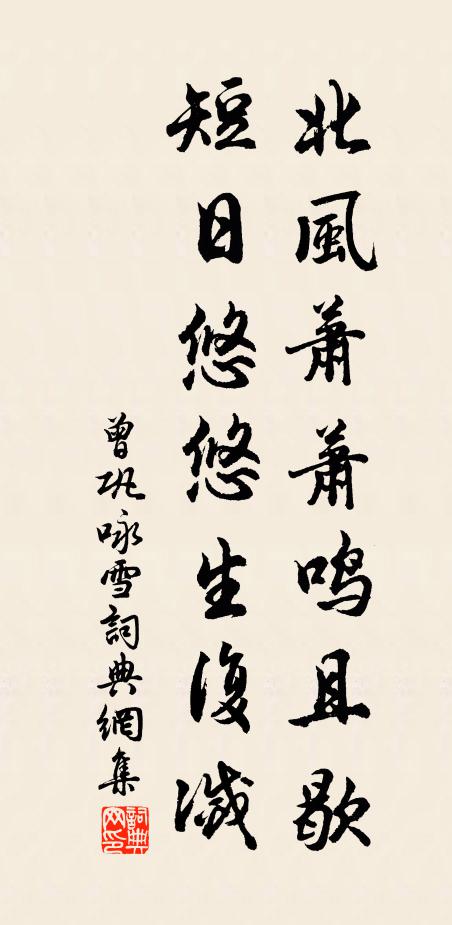 北風蕭蕭鳴且歇
短日悠悠生復滅
曾巩咏雪詞典網集
詞典网印